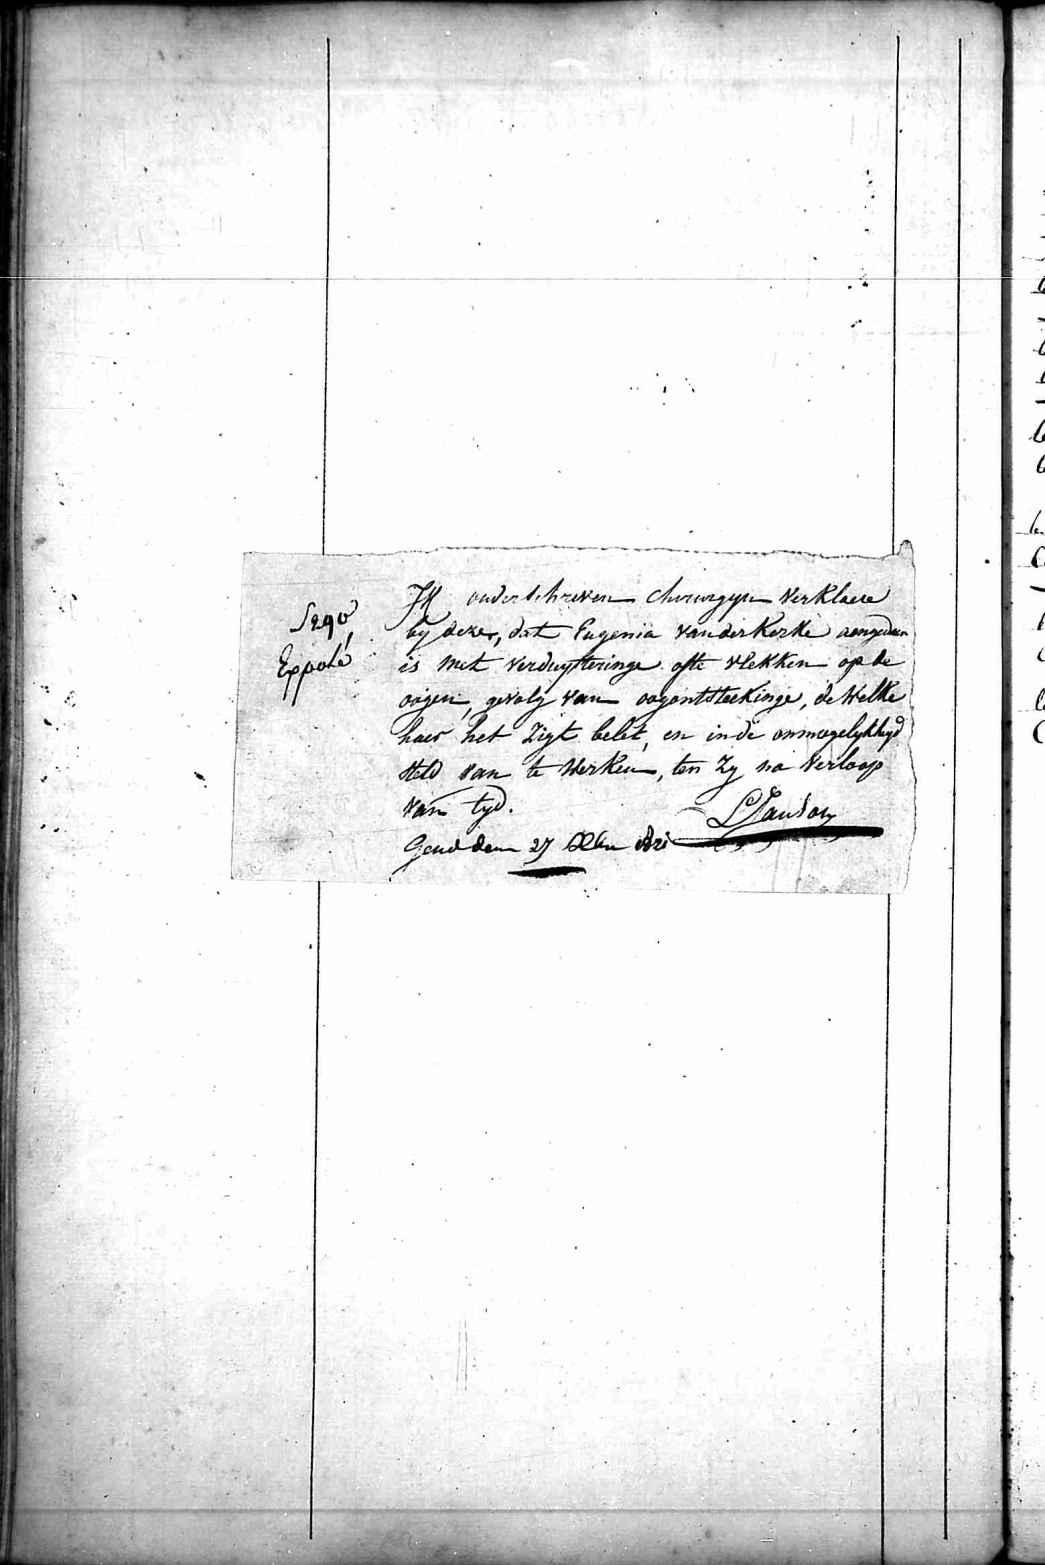 Ik onderschreven chirurgyn verklaere
by deze, dat Eugenia vanderKerke aengedaen
is met verduysteringe ofte vlekken op de
oogen, gevolg van oogontsteekinge, de welke
haer het zigt belet, en in de onmogelykheyd
steld van te werken, ten zy na verloop
van tyd.
Gend den 27